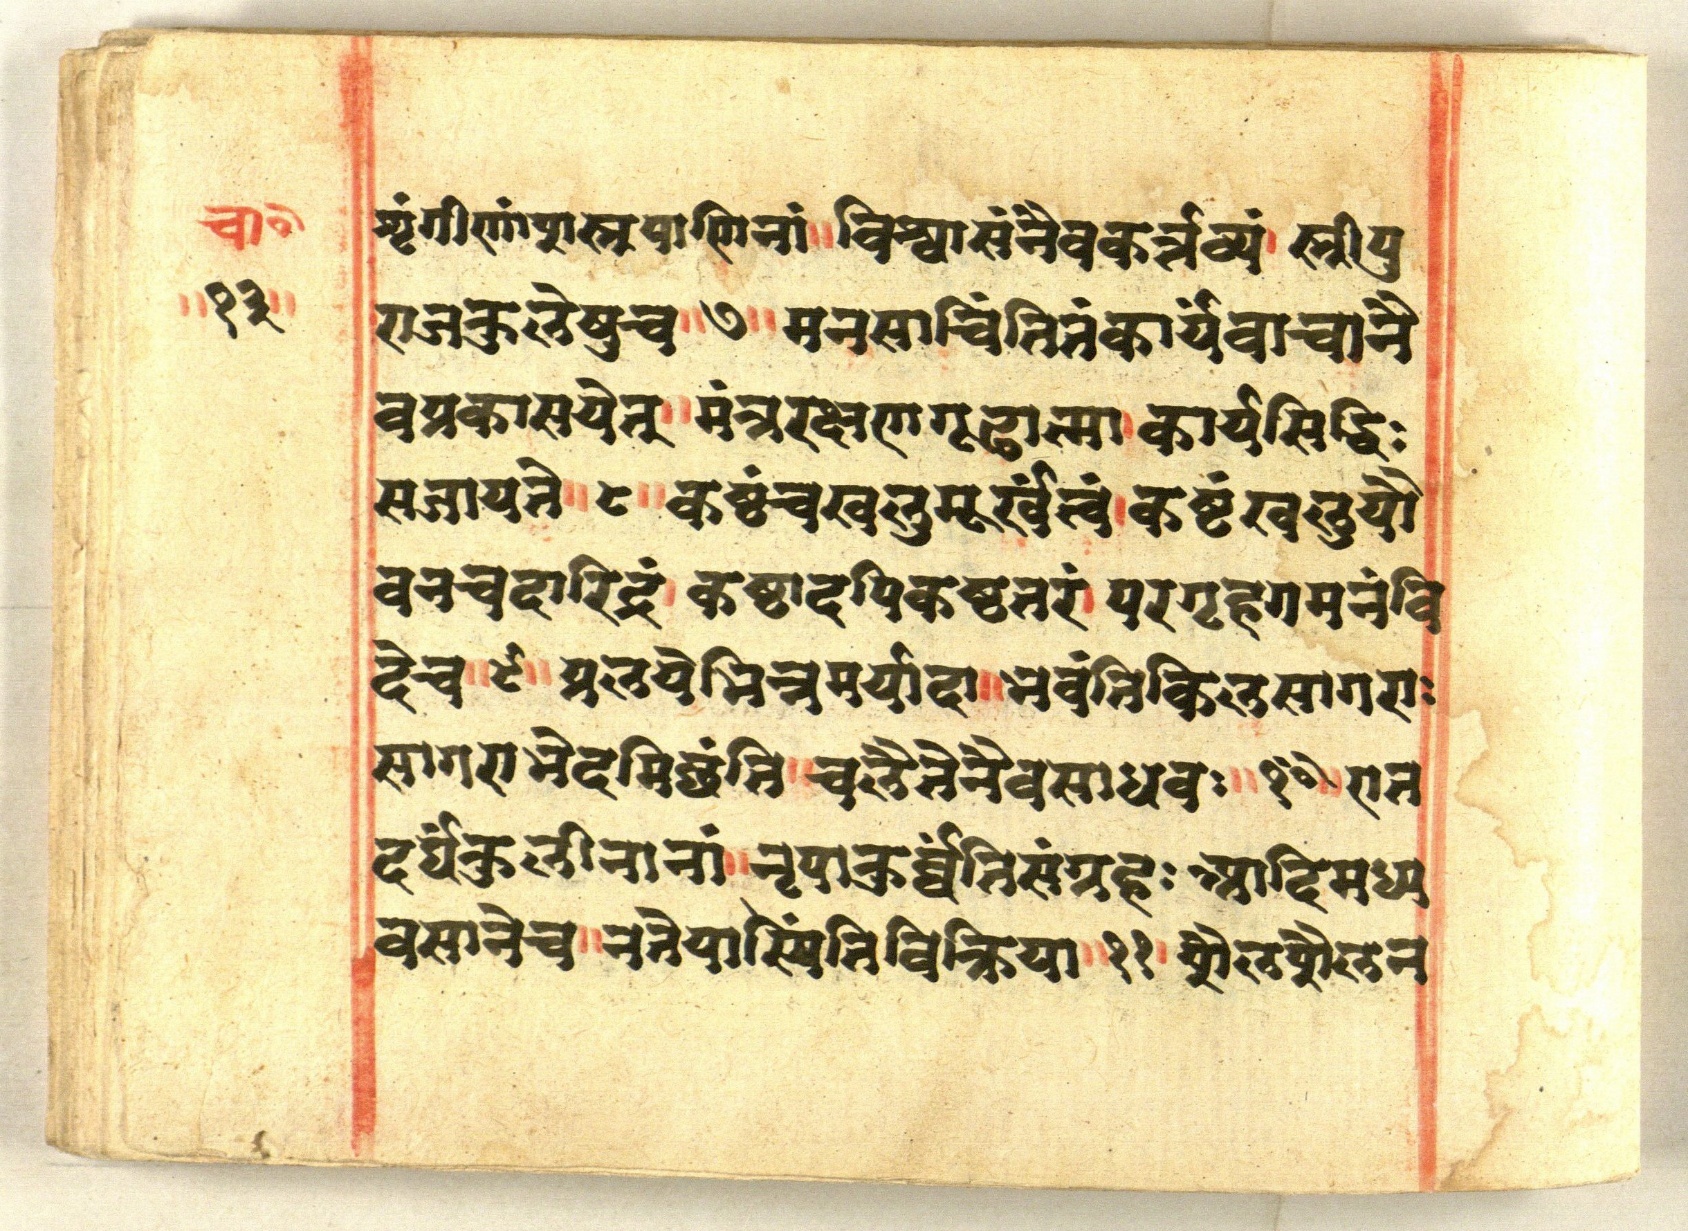 चा०
॥१३॥
शृंगीणांषुस्त्रपाणिनां॥ विश्वासंनैवकर्त्तव्यं। स्त्रीषु
राजकुलेषुच॥७॥ मनसाचिंतितंकार्यंवाचानै
वप्रकासयेत्॥ मंत्ररक्षणगूढात्मा। कार्यसिद्धिः
सजायते॥८॥ कष्टंचखलुमूर्खंत्वं। कष्टंखलुयौ
वनचदारिद्रं। कष्टादपिकष्टतरं। परगृहगमनंवि
देच॥९॥ प्रलयेभिन्नमर्यादा॥ भवंतिकिलसागराः
सागराभेदमिछंति॥ चलैतेनैवसाधवः॥१०॥ रात
दर्थंकुलीनानां॥ नृपाकुर्व्वंतिसंग्रहः आदिमध्य
वसानेच॥ नतेयास्यिंतिविक्रिया॥११॥ शैलेशैलेन